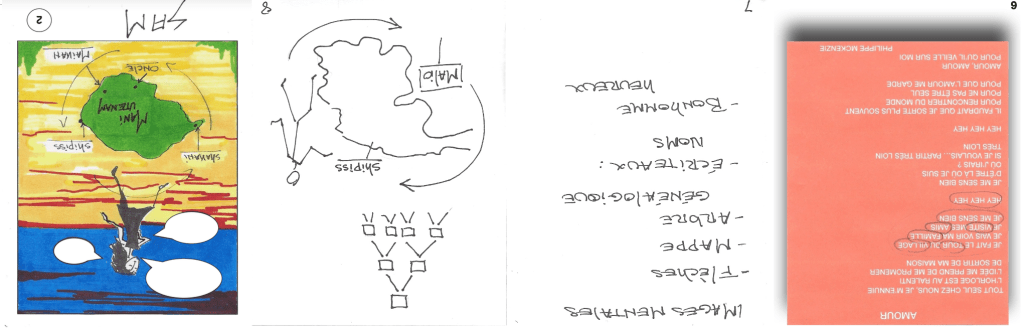 AMOUR
TOUT SEUL, CHEZ NOUS, JE M'ENNUIE
L'HORLOGE EST AU RALENTI
L'IDÉE ME PREND DE ME PROMENER
DE SORTIR DE MA MAISON
JE FAIT LE TOUR DU VILLAGE
JE VAIS VOIR MA FAMILLE
JE VISITE MES AMIS
JE ME SENS BIEN
HEY HEY HEY
JE ME SENS BIEN
D'ÊTRE LÀ OÙ JE SUIS
OÙ J'IRAIS ?
SI JE VOULAIS... PARTIR TRÈS LOIN
TRÈS LOIN
HEY HEY HEY
IL FAUDRAIT QUE JE SORTE PLUS SOUVENT
POUR RENCONTRER DU MONDE
POUR NE PAS ÊTRE SEUL
POUR QUE L'AMOUR ME GARDE
AMOUR, AMOUR
POUR QU'IL VEILLE SUR MOI
PHILIPPE MCKENZIE
6
IMAGES MENTALES
- FLÈCHES
- MAPPE
- ARBRE
GÉNÉALOGIQUE
- ÉCRITEAUX :
NOMS
- BONHOMME
HEUREUX
7
SHIPISS
MALIO
8
SHIPISS
MANI
UTENAM
ONCLE
SAM
2